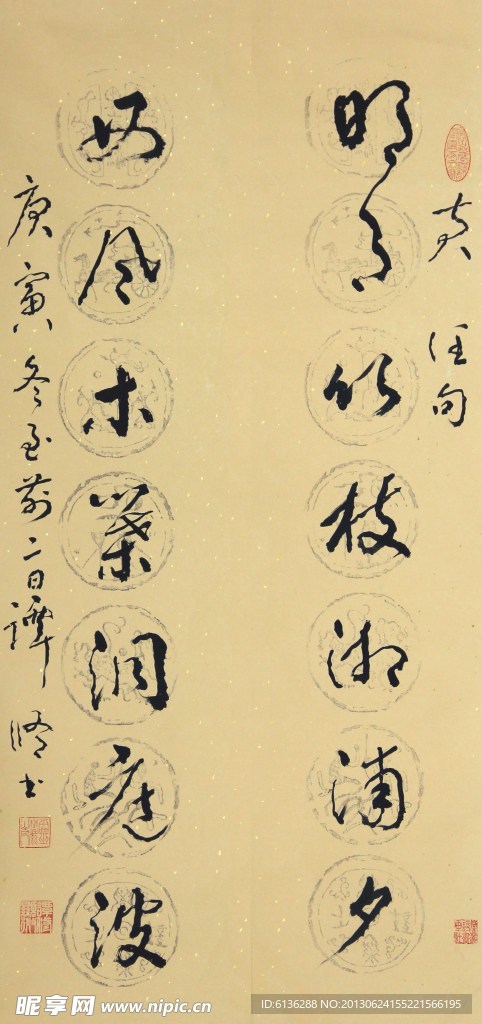 句
明月竹枝湘浦夕
風木葉洞庭波
庚寅冬至前二日譚书
昵享网 www.nipic.cn
ID:6136288 NO:20130624155221566195